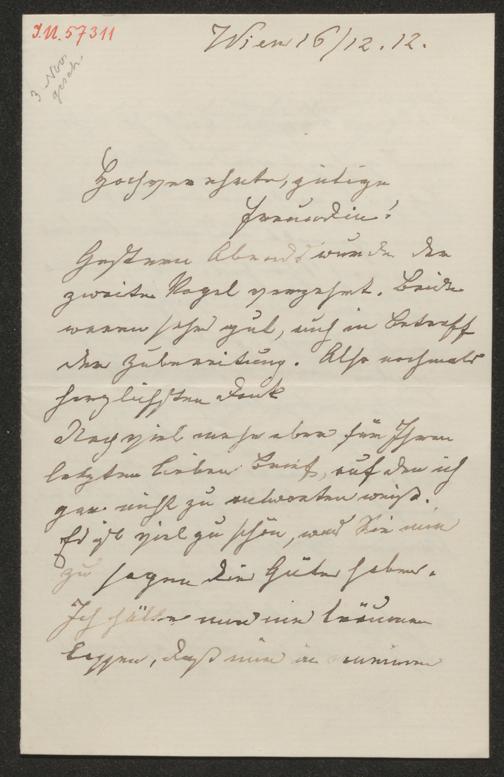 I.N. 57311
3 Nov.
gesch.
Wien 16/12.12.
Hochverehrte, gütige
Freundin!
Gestern Abends wurde der
zweite Vogel verzehrt. Beide
waren sehr gut, auch in Betreff
der Zubereitung. Also nochmals
herzlichsten Dank
Noch viel mehr aber für Ihren
letzten lieben Brief, auf den ich
gar nicht zu antworten weiß.
Es ist viel zu schön, was Sie mir
zu sagen die Güte haben.
Ich hätte mir nie träumen
lassen, daß mir in meinem